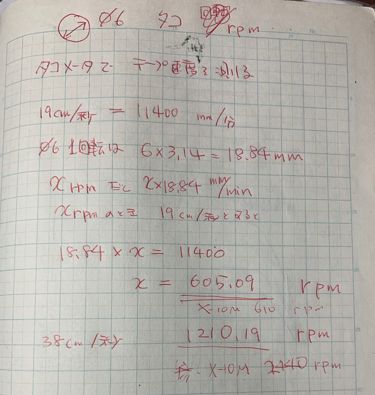 φ6 タコ rpm
タコメータで テープ速度を測る
19cm/秒 = 11400 mm/分
φ6 1回転は 6×3.14=18.84mm
x rpm だと x×18.84 mm/min
x rpm のとき 19cm/秒とすると
18.84 × x = 11400
x = 605.09 rpm
X-10M 610 rpm
38cm/秒 1210.19 rpm
X-10M rpm